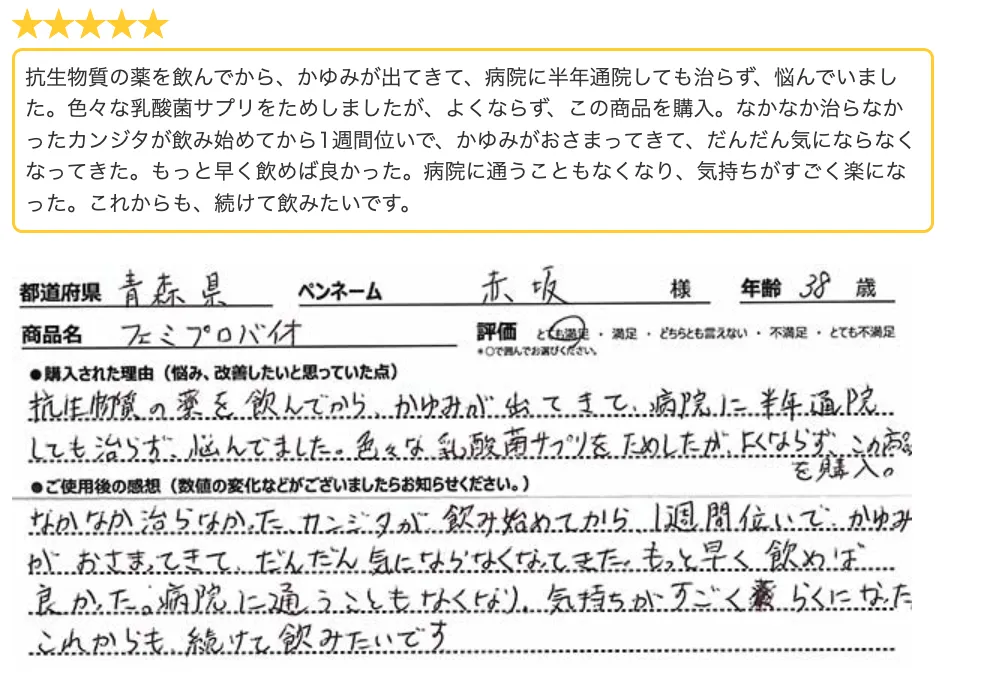 抗生物質の薬を飲んでから、かゆみが出てきて、病院に半年通院しても治らず、悩んでいまし
た。色々な乳酸菌サプリをためしましたが、よくならず、この商品を購入。なかなか治らなか
ったカンジタが飲み始めてから1週間位いで、かゆみがおさまってきて、だんだん気にならなく
なってきた。もっと早く飲めば良かった。病院に通うこともなくなり、気持ちがすごく楽にな
った。これからも、続けて飲みたいです。
都道府県 青森県 ペンネーム 赤坂 様 年齢 38 歳
商品名 フェミプロバイオ 評価 とても満足 ・ 満足 ・ どちらとも言えない ・ 不満足 ・ とても不満足
*○で囲んでお選びください。
●購入された理由（悩み、改善したいと思っていた点）
抗生物質の薬を飲んでから、かゆみが出てきて、病院に半年通院
しても治らず、悩んでました。色々な乳酸菌サプリをためしたが、よくならず、この商品
を購入。
●ご使用後の感想（数値の変化などがございましたらお知らせください。）
なかなか治らなかった カンジタが 飲み始めてから、1週間位いで、かゆみ
が おさまってきて、だんだん気にならなくなってきた。もっと早く飲めば
良かった。病院に通うこともなくなり、気持ちがすごく らくになった
これからも、続けて飲みたいです